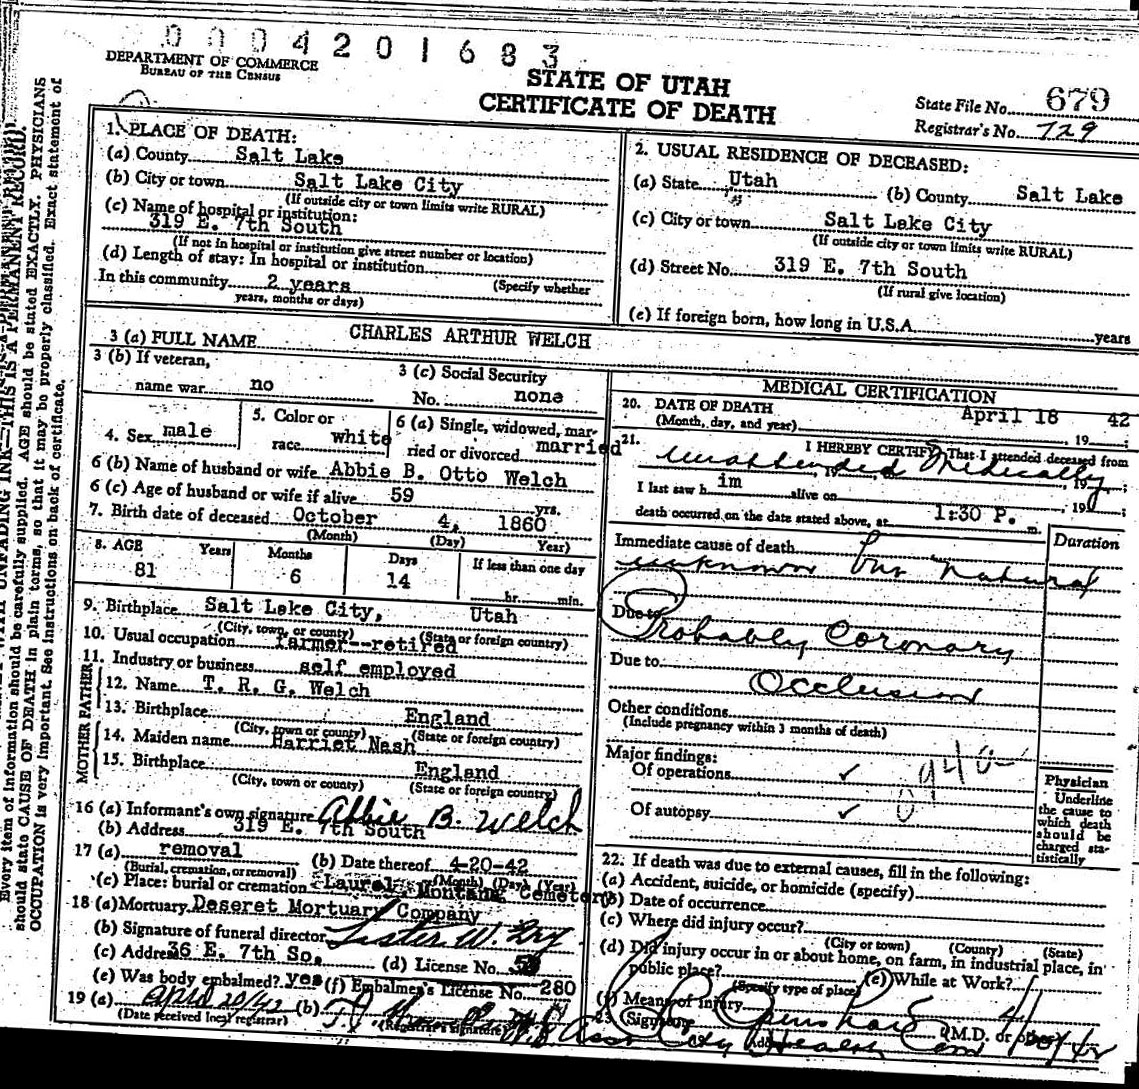 0004201683
DEPARTMENT OF COMMERCE
BUREAU OF THE CENSUS
STATE OF UTAH
CERTIFICATE OF DEATH
State File No. 679
Registrar's No. 729
Every item of information should be carefully supplied. AGE should be stated EXACTLY. PHYSICIANS
should state CAUSE OF DEATH in plain terms, so that it may be properly classified. Exact statement of
OCCUPATION is very important. See instructions on back of certificate.
1. PLACE OF DEATH:
(a) County Salt Lake
(b) City or town Salt Lake City
(If outside city or town limits write RURAL)
(c) Name of hospital or institution:
319 E. 7th South
(If not in hospital or institution give street number or location)
(d) Length of stay: In hospital or institution
In this community 2 years (Specify whether
years, months or days)
2. USUAL RESIDENCE OF DECEASED:
(a) State Utah (b) County Salt Lake
(c) City or town Salt Lake City
(If outside city or town limits write RURAL)
(d) Street No. 319 E. 7th South
(If rural give location)
(e) If foreign born, how long in U.S.A. years
3 (a) FULL NAME CHARLES ARTHUR WELCH
3 (b) If veteran,
name war no
3 (c) Social Security
No. none
4. Sex male
5. Color or
race white
6 (a) Single, widowed, mar-
ried or divorced married
6 (b) Name of husband or wife Abbie B. Otto Welch
6 (c) Age of husband or wife if alive 59 yrs.
7. Birth date of deceased October 4, 1860
(Month) (Day) Year)
8. AGE Years Months Days If less than one day
81 6 14 hr. min.
9. Birthplace Salt Lake City, Utah
(City, town, or county) (State or foreign country)
10. Usual occupation farmer--retired
11. Industry or business self employed
FATHER
12. Name T. R. G. Welch
13. Birthplace England
(City, town or county) (State or foreign country)
MOTHER
14. Maiden name Harriet Nash
15. Birthplace England
(City, town, or county) (State or foreign country)
16 (a) Informant's own signature Abbie B. Welch
(b) Address 319 E. 7th South
17 (a) removal (b) Date thereof 4-20-42
(Burial, cremation, or removal) (Month) (Day) (Year)
(c) Place: burial or cremation Laurel, Montana Cemetery
18 (a) Mortuary Deseret Mortuary Company
(b) Signature of funeral director
(c) Address 36 E. 7th So. (d) License No.
(e) Was body embalmed? yes (f) Embalmer's License No. 280
19 (a) April 20/42 (b)
(Date received local registrar) (Registrar's signature)
MEDICAL CERTIFICATION
20. DATE OF DEATH April 18 42
(Month, day, and year) 19
21. I HEREBY CERTIFY, That I attended deceased from
unattended medically
I last saw h im alive on 19
death occurred on the date stated above, at 1:30 P. m.
Immediate cause of death Duration
unknown but natural
Due to
Probably Coronary
Due to
Occlusion
Other conditions
(Include pregnancy within 3 months of death)
Major findings:
Of operations ✓
Of autopsy ✓
Physician
Underline
the cause to
which death
should be
charged sta-
tistically
22. If death was due to external causes, fill in the following:
(a) Accident, suicide, or homicide (specify)
(b) Date of occurrence
(c) Where did injury occur?
(City or town) (County) (State)
(d) Did injury occur in or about home, on farm, in industrial place, in
public place? (e) While at Work?
(Specify type of place)
(f) Means of injury
23 (Signature) (M.D. or other)
Asst City Health